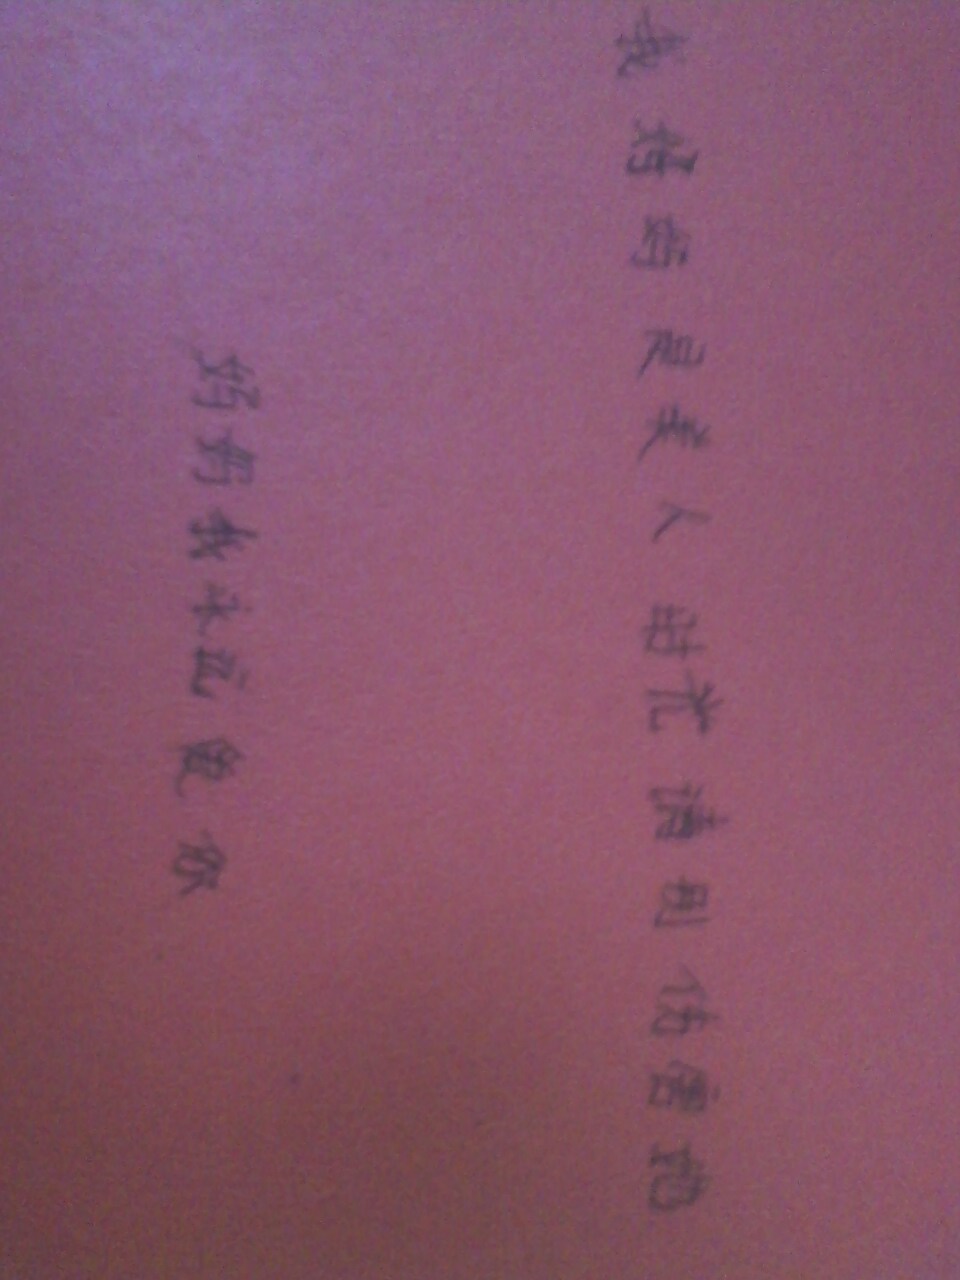 我 妈妈 是 美 人 时 光 请 别 伤害 她
妈妈 我 永远 爱 你